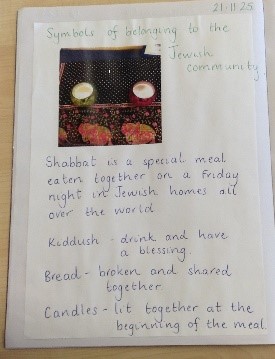 21.11.25
Symbols of belonging to the
Jewish
community.
Shabbat is a special meal
eaten together on a Friday
night in Jewish homes all
over the world
Kiddush - drink and have
a blessing.
Bread - broken and shared
together
Candles - lit together at the
beginning of the meal.